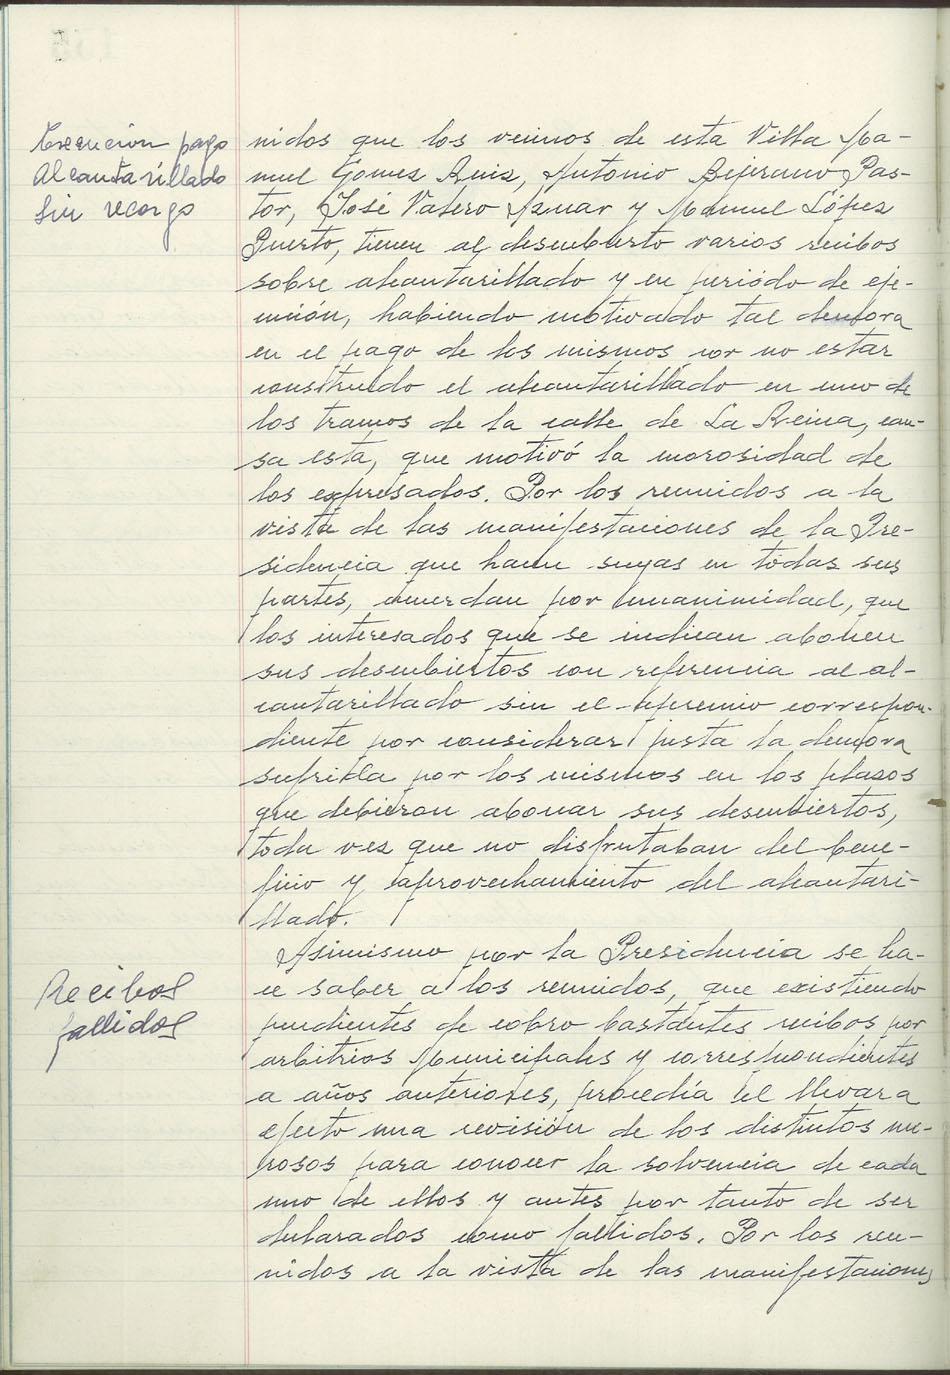 Exención pago
Alcantarillado
Sin recargo
nidos que los vecinos de esta Villa Ma-
nuel Gomez Ruiz, Antonio Bejerano Pas-
tor, José Valero Aznar y Manuel López
Puerto, tienen al descubierto varios recibos
sobre alcantarillado y en periódo de eje-
cución, habiendo motivado tal demora
en el pago de los mismos por no estar
construido el alcantarillado en uno de
los tramos de la calle de La Reina, cau-
sa esta, que motivó la morosidad de
los expresados. Por los reunidos a la
vista de las manifestaciones de la Pre-
sidencia que hacen suyas en todas sus
partes, acuerdan por unanimidad, que
los interesados que se indican abonen
sus descubiertos con referencia al al-
cantarillado sin el apremio correspon-
diente por considerar justa la demora
sufrida por los mismos en los plazos
que debieron abonar sus descubiertos,
toda vez que no disfrutaban del bene-
ficio y aprovechamiento del alcantari-
llado.
Recibos
fallidos
Asimismo por la Presidencia se ha-
ce saber a los reunidos, que existiendo
pendientes de cobro bastantes recibos por
arbitrios Municipales y correspondientes
a años anteriores, procedia el llevar a
efecto una revisión de los distintos mo-
rosos para conocer la solvencia de cada
uno de ellos y antes por tanto de ser
declarados como fallidos. Por los reu-
nidos a la vista de las manifestaciones